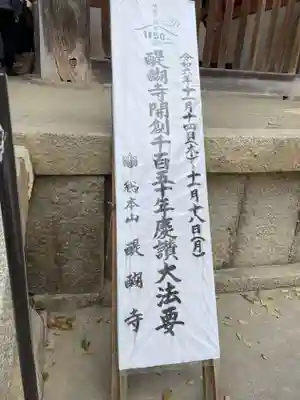 1150
令和六年十一月十四日(木)~十一月十八日(月)
醍醐寺開創千百五十年慶讃大法要
総本山 醍醐寺